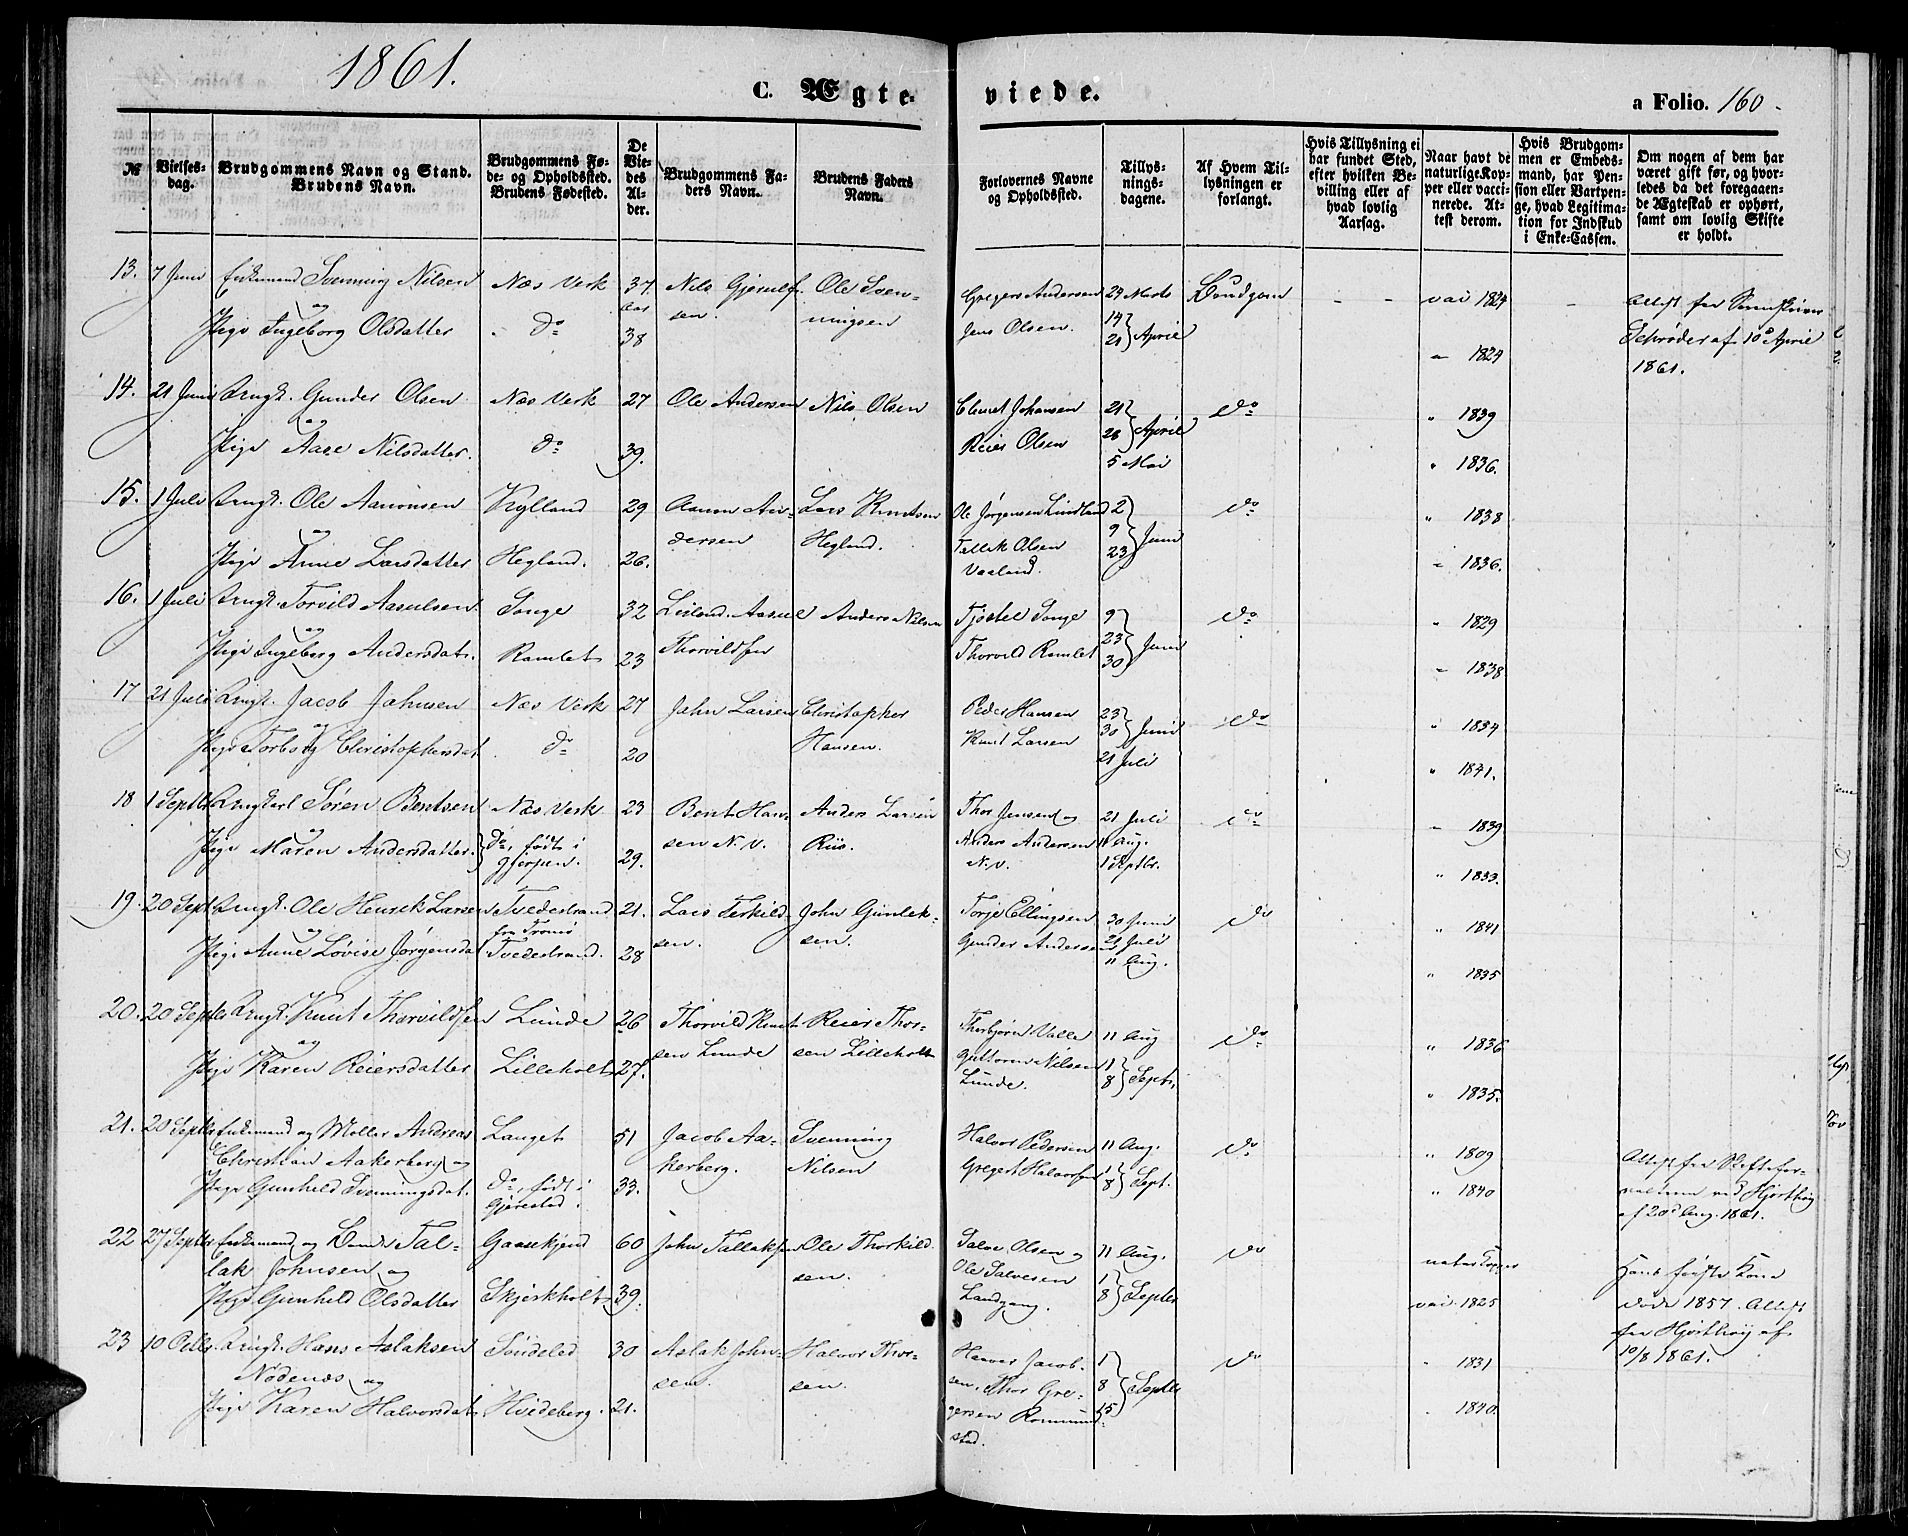 1861.
C. Ægteviede.
a Folio. 160.
№ | Vielsesdag. | Brudgommens Navn og Stand. Brudens Navn. | Brudgommens Føde- og Opholdssted. Brudens Fødested. | De Viedes Alder. | Brudgommens Faders Navn. | Brudens Faders Navn. | Forlovernes Navne og Opholdssted. | Tillysningsdagene. | Af Hvem Tillysningen er forlangt. | Hvis Tillysning ei har fundet Sted, efter hvilken Bevilling eller af hvad lovlig Aarsag. | Naar havt de naturlige Kopper eller vaccinerede. Attest derom. | Hvis Brudgommen er Embedsmand, har Pension eller Vartpenge, hvad Legitimation for Indskud i Enke-Cassen. | Om nogen af dem har været gift før, og hvorledes da det foregaaende Ægteskab er ophørt, samt om lovlig Skifte er holdt.
13. 7 Juni Enkemand Svenning Nilsen Næs Verk 37 Nils Gjerulf Ole Sven- Gregers Andersen 24 Marts Brudgom vac 1824 Attest fra
og aar sen. ningsen Jens Olsen. 14 21 April Schrøder af 10de April
Pige Ingeborg Olsdatter do 38 " 1824 1861.
14. 21 Juni Ungk. Gunder Olsen Næs Verk 27 Ole Andersen Nils Olsen Clemet Johansen 21 do " 1839
og Reier Olsen 28 April
Pige Aase Nilsdatter. do 39. 5 Mai " 1836.
15. 1 Juli Ungk. Ole Aanonsen Kylland 29 Aanon An- Lars Knutsen Ole Jørgensen Lindland 2 do " 1838
og dersen Hegland. Tellek Olsen 9 Juni
Pige Anne Larsdatter Hegland. 26. Vaaland. 23 " 1836.
16. 1 Juli Ungk. Torvild Aasulsen Songe 32 Leiland. Aasul Anders Nilsen Tjøstel Songe 9 do " 1829
og Thorvildsen 23 Juni
Pige Ingeborg Andersdat. Ramlet 23 Thorvild Ramlet 30 " 1838
17 21 Juli Ungk. Jacob Johnsen Næs Verk 27 John Larsen Christopher Peder Hansen 23 do " 1834
og Hansen. Knut Larsen 30 Juni
Pige Torborg Christophersdat. do 20 21 Juli " 1841.
18 1 Septbr Ungkarl Søren Bentsen Næs Verk 23 Bent Han- Anders Larsen Thor Jensen og 21 Juli do " 1839
og do, født i sen N. v. Riis. Anders Andersen 11 Aug.
Pige Maren Andersdatter. Gjerpen. 29. N. v. 1 Septbr. " 1833.
19. 20 Sept. Ungk. Ole Henrik Larsen Tvedestrand 21. Lars Terkild- John Gunlek- Torje Ellingsen 30 Juni do " 1841
og fra Tromø sen. sen. Gunder Andersen 21 Juli
Pige Anne Lovise Jørgensdat Tvedestrand. 28 11 Aug. " 1835
20. 20 Septbr Ungk. Knut Thorvildsen Lunde 26 Thorvild Knut- Reier Thor- Thorbjørn Valle 11 Aug do " 1836
og sen Lunde sen Lilleholt Guttorm Nilsen 1
Pige Karen Reiersdatter Lilleholt 27. Lunde. 8 Septr. " 1835.
21. 20 Septbr Enkemand og Møller Andreas Langet 51 Jacob Aa- Svenning Halvor Pedersen 11 Aug. do " 1809
Christian Aakerberg og kerberg. Nilsen Gregert Halvorsen 1 Attest fra Skiftefor-
Pige Gunhild Svenningsdat. do, født i 33. 8 Sept. " 1840 valteren ved Hjorthøy
Gjerestad. af 20d Aug. 1861.
22 27 Septbr Enkemand og Bonde Tal- Gaasekjend 60 John Tallaksen Ole Thorkild- Salve Olsen og 11 Aug. do naturl Kopper Hans første Kone
lak Johnsen og sen. Ole Salvesen 1 døde 1857. Attest
Pige Gunhild Olsdatter Skjerkholt 39. Landgang. 8 Septbr vac. 1825 fra Hjorthøy af
10/8 1861.
23 10 Octbr. Ungk. Hans Aslaksen Søndeled 30 Aslak John- Halvor Thor- Haaver Jacob- 1 do " 1831
Nødenæs og sen. sen. sen, Thor Gre- 8 Septbr
Pige Karen Halvorsdat. Hvideberg. 21. gersen Rommund- 15 " 1840.
stad.